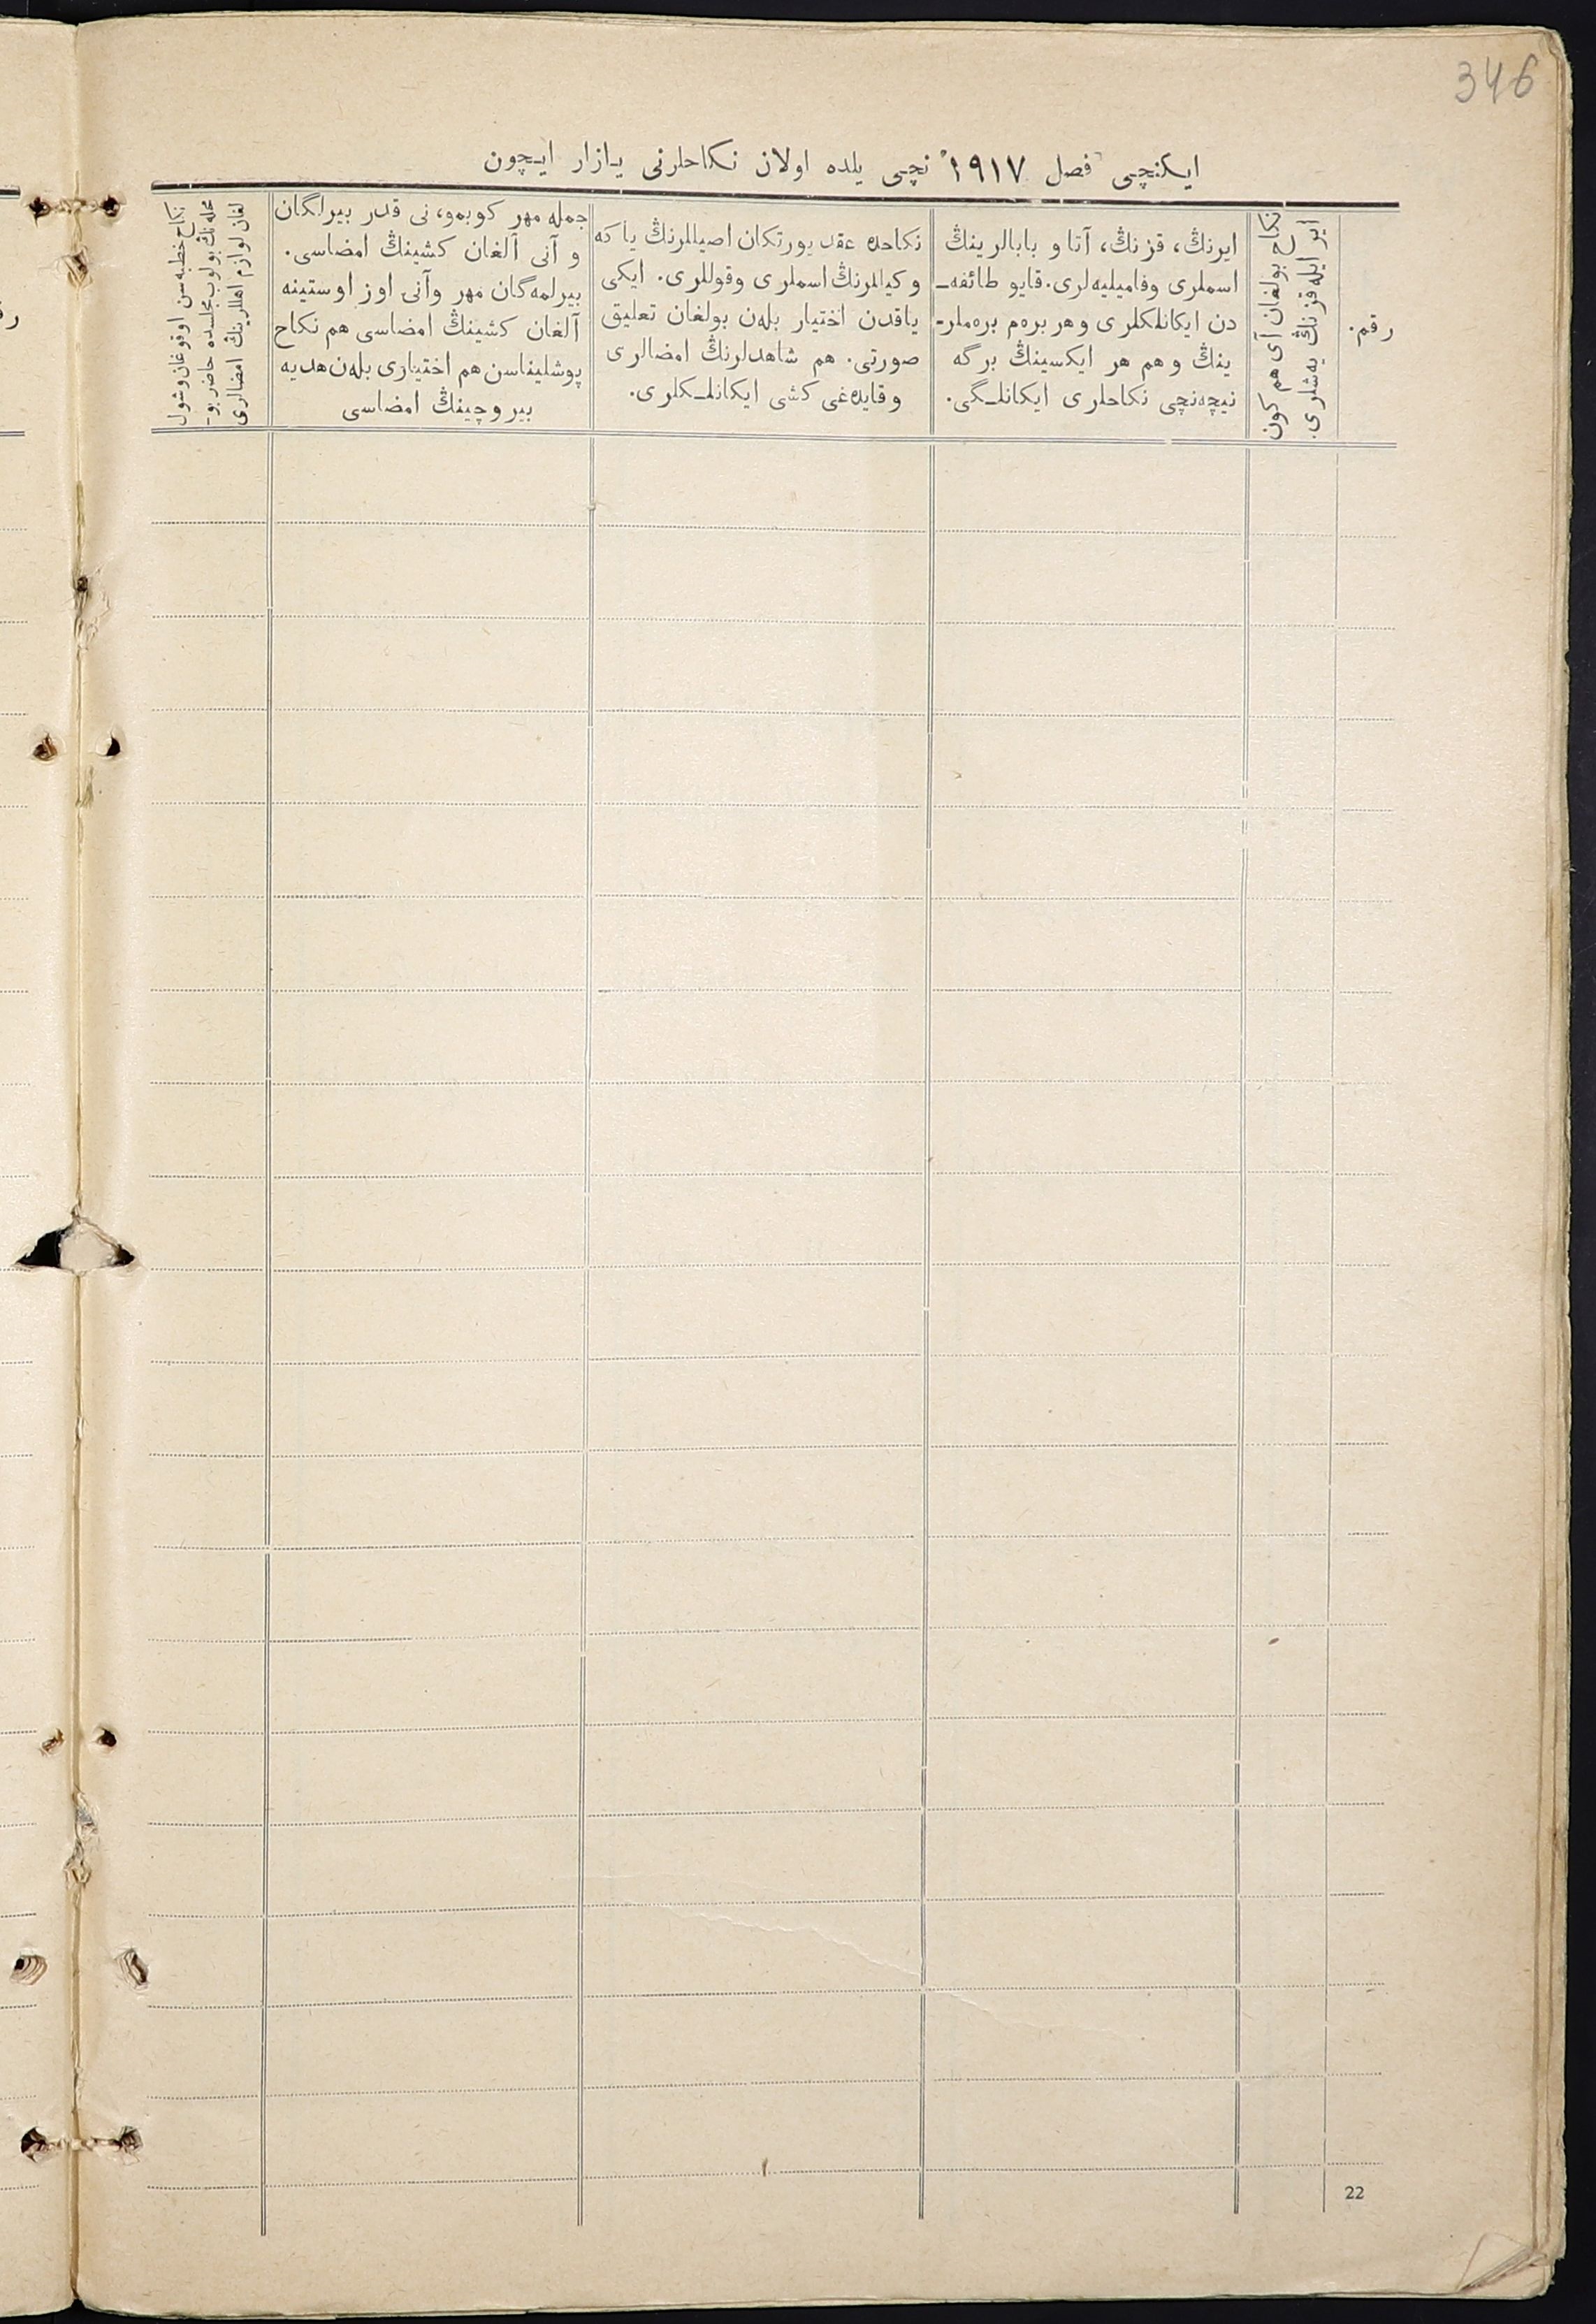 346
ایکنچی فصل ١٩١٧ نچی یلده اولان نکاحلرنی یازار ایچون
رقم.
نکاح بولغان آی هم کون
ایر ایله قزنڭ یه‌شلری.
ایرنڭ، قزنڭ، آتا و بابالرینڭ
اسملری وفامیلیه‌لری. قایو طائفه‌ـ
دن ایکانلکلری وهر بره‌م بره‌ملر-
ینڭ وهم هر ایکسینڭ برگه
نیچه‌نچی نکاحلری ایکانلـگی.
نکاحده عقد یورتکان اصیللرنڭ یا که
وکیللرنڭ اسملری وقوللری. ایکی
یاقدن اختیار بله‌ن بولغان تعلیق
صورتی. هم شاهدلرنڭ امضالری
وقایده‌غی کشی ایکانلـکلری.
جمله مهر کوبمو، نی قدر بیرلگان
و آنی آلغان کشینڭ امضاسی.
بیرلمه‌گان مهر وآنی اوز اوستینه
آلغان کشینڭ امضاسی هم نکاح
پوشلیناسن هم اختیاری بله‌ن هدیه
بیروچینڭ امضاسی
نکاح خطبه‌سن اوقوغان وشول
محله‌نڭ بولوب مجلسده حاضر بو-
لغان لوازم اهللرینڭ امضالری
رق
22